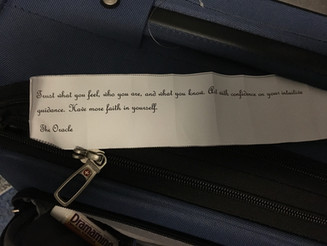 Trust what you feel, who you are, and what you know. Act with confidence on your intuitive
guidance. Have more faith in yourself.
The Oracle
Dramamine